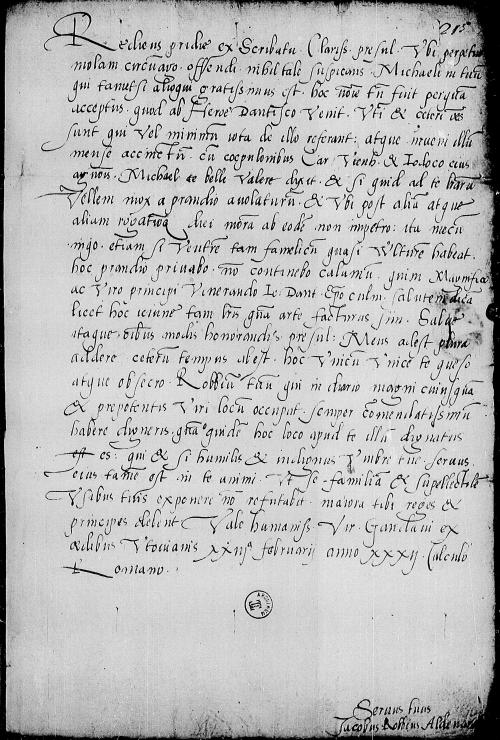 215
Rediens pridie ex Scribatu Clariss. presul. Ubi perpetuā
molam circūago. offendi nihil tale suspicans Michaelē
qui tametsi alioqui gratissimus est. hoc noīe tm̄ fuit perquā
acceptus, quod ab Heroe Dantisco Venit. Uti & ceteri oēs
sunt qui Vel minimū iota de illo referant: atque inveni illū
mense accinctū. cū coepulonibus Car Vienn. & Iodoco eius
Michael te belle Valere dixit. & si quid ad te
Vellem mox a prandio avolaturū. & Ubi post aliā atque
aliam diei morā ab eodē non impetro: ita mecū
etiam si Ventrē tam famelicū quasi Vulturē habeat.
hoc prandio privabo. nō continebo calamū. quin Magnifico
ac Viro principi Venerando Io: Dant. Epō culm. salutem dicā
licet hoc ieiune tam qnā arte facturus sim. Salve
itaque oībus modis honorandis presul: Meus adest plura
addere ceterū tempus abest. hoc Unicū Unice te queso
atque obsecro. Robbeū tuū qui in diario magni cuiusquā
& prepotentis Viri locū occupat. semper comendatissimū
habere digneris. quidē hoc loco apud te illū dignatus
es: qui & si humilis & indignus Umbre tue servus.
eius tamē est in te animi. Ut se familiā & supellectilē
Usibus tuis exponere nō refutabit. maiora tibi reges &
principes debent Vale humaniss. Vir. Gandavi ex
edibus Utovianis xxij<sup>a</sup> februarij anno xxxij Calculo
Romano.
Servus tuus
Jacobus Robbeus